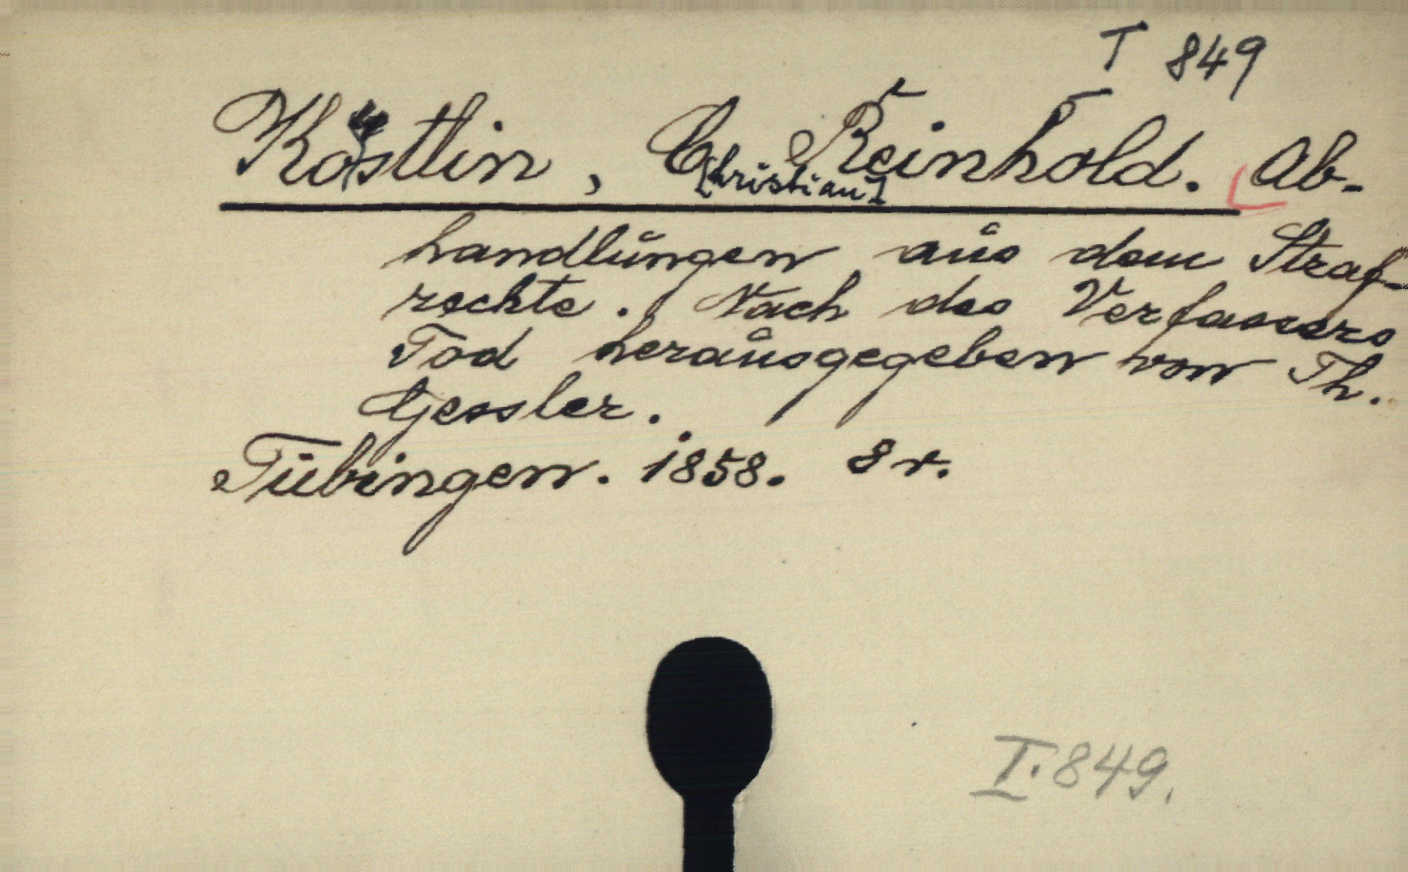 T 849
Köstlin, C[hristian] Reinhold. Ab-
handlungen aus dem Straf-
rechte. Nach des Verfassers
Tod herausgegeben von Th.
Gessler.
Tübingen. 1858. 8 r.
I. 849.